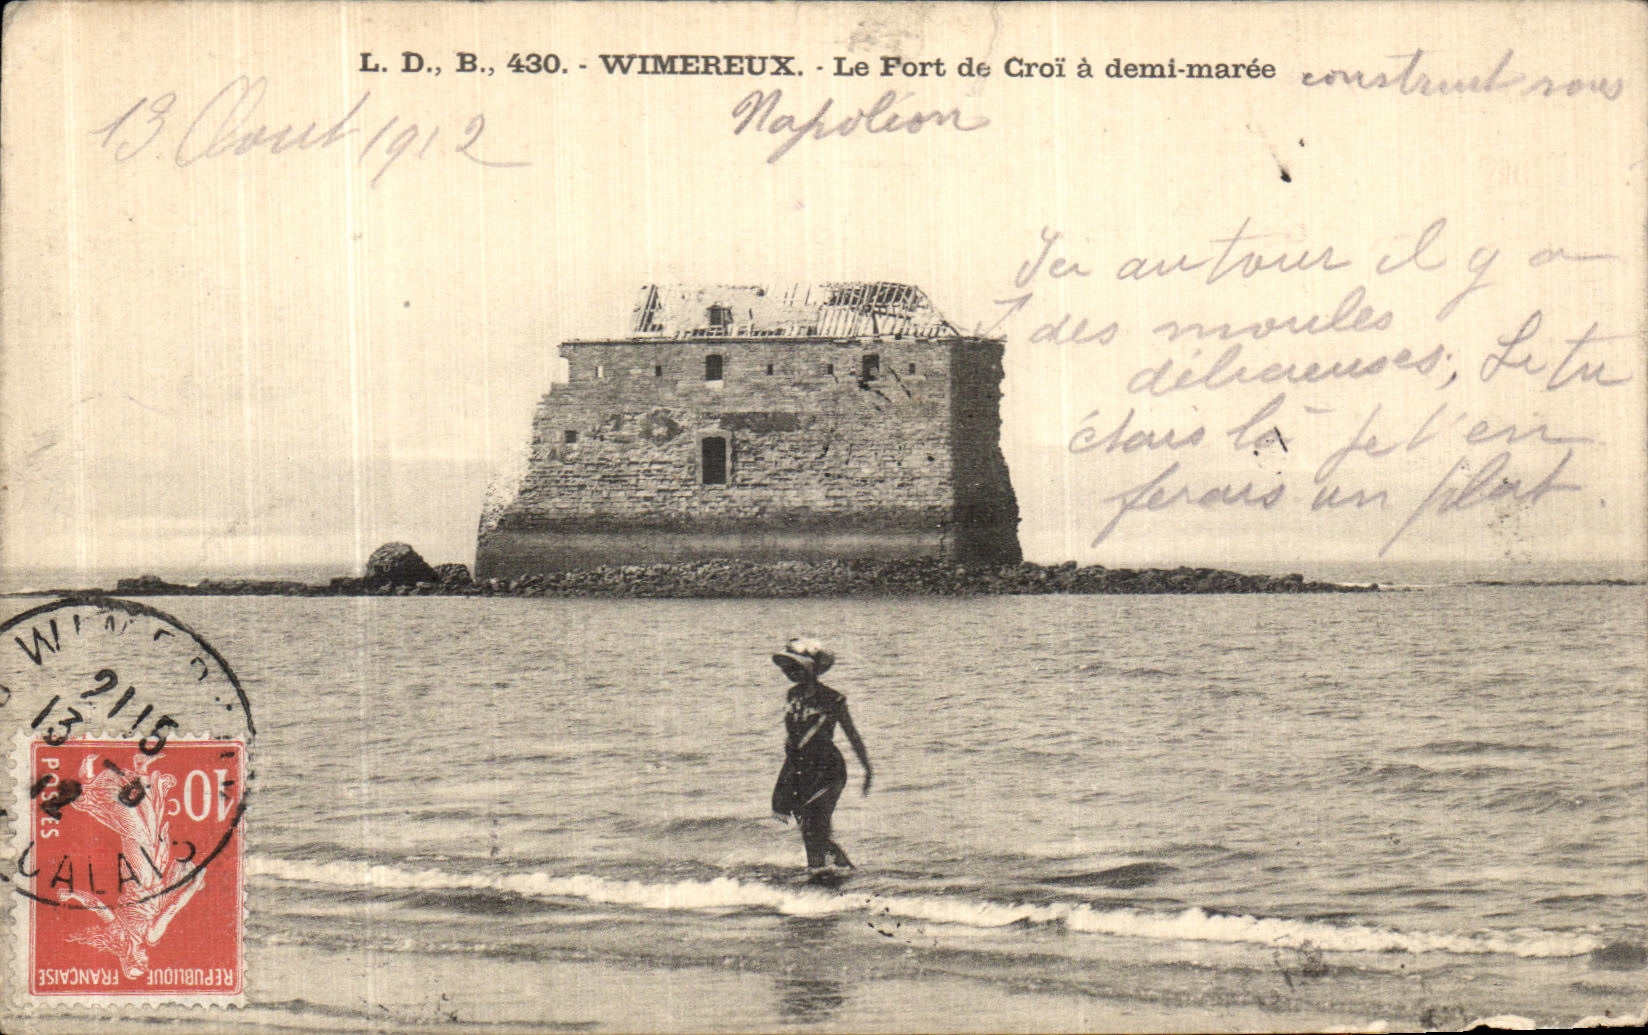 L. D., B., 430. - WIMEREUX. - Le Fort de Croï à demi-marée construit sous
Napoléon
13 Aout 1912
Ici autour il y a
des moules
délicieuses; Si tu
étais là je t'en
ferais un plat.
WIMEREUX
21 15
13 -8
12
CALAIS
10c
POSTES
REPUBLIQUE FRANÇAISE